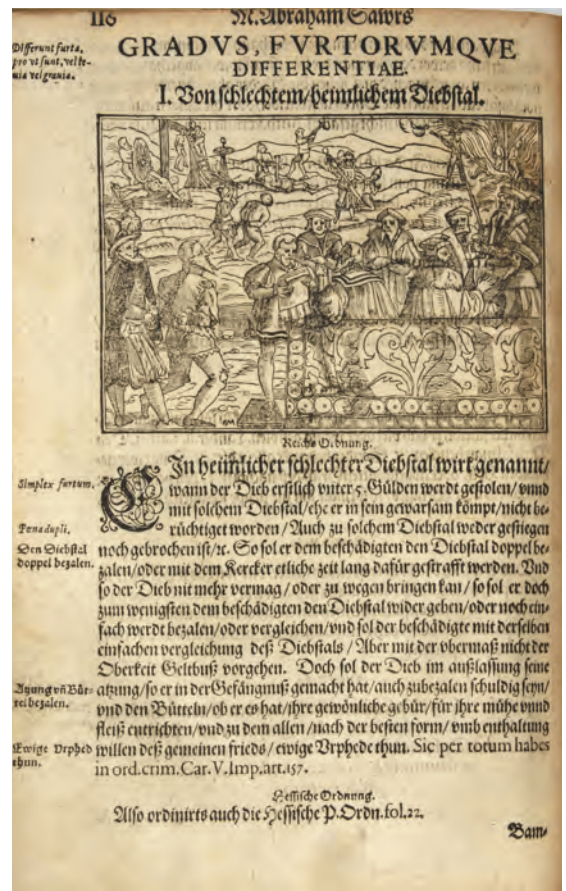 116
M. Abraham Sawrs
GRADVS, FVRTORVMQVE
DIFFERENTIAE.
I. Von schlechtem/heimlichem Diebstal.
Differunt furta,
pro vt sunt, vel le-
uia vel grauia.
Reichs Ordnung.
EIn heimlicher schlechter Diebstal wirt genannt/
wann der Dieb erstlich vnter 5. Gülden werdt gestolen/vnnd
mit solchem Diebstal/ehe er in sein gewarsam kömpt/nicht be-
rüchtiget worden/Auch zu solchem Diebstal weder gestiegen
noch gebrochen ist/rc. So sol er dem beschädigten den Diebstal doppel be-
zalen/oder mit dem Kercker etliche zeit lang dafür gestrafft werden. Vnd
so der Dieb nit mehr vermag/oder zu wegen bringen kan/so sol er doch
zum wenigsten dem beschädigten den Diebstal wider geben/oder noch ein-
fach werdt bezalen/oder vergleichen/vnd sol der beschädigte mit derselben
einfachen vergleichung deß Diebstals/Aber mit der vbermaß nicht der
Oberkeit Geltbuß vorgehen. Doch sol der Dieb im außlassung seine
atzung/so er in der Gefängnuß gemacht hat/auch zubezalen schuldig seyn/
vnd den Bütteln/ob er es hat/ihre gewönliche gebür/für ihre mühe vnnd
fleiß entrichten/vnd zu dem allen/nach der besten form/vmb enthaltung
willen deß gemeinen frieds/ewige Vrphede thun. Sic per totum habes
in ord. crim. Car. V. Imp. art. 157.
Simplex furtum.
Pœna dupli.
Den Diebstal
doppel bezalen.
Atzung vñ Büt-
tel bezalen.
Ewige Vrphed
thun.
Hessische Ordnung.
Also ordinirts auch die Hessische P. Ordn. fol. 22.
Bam-